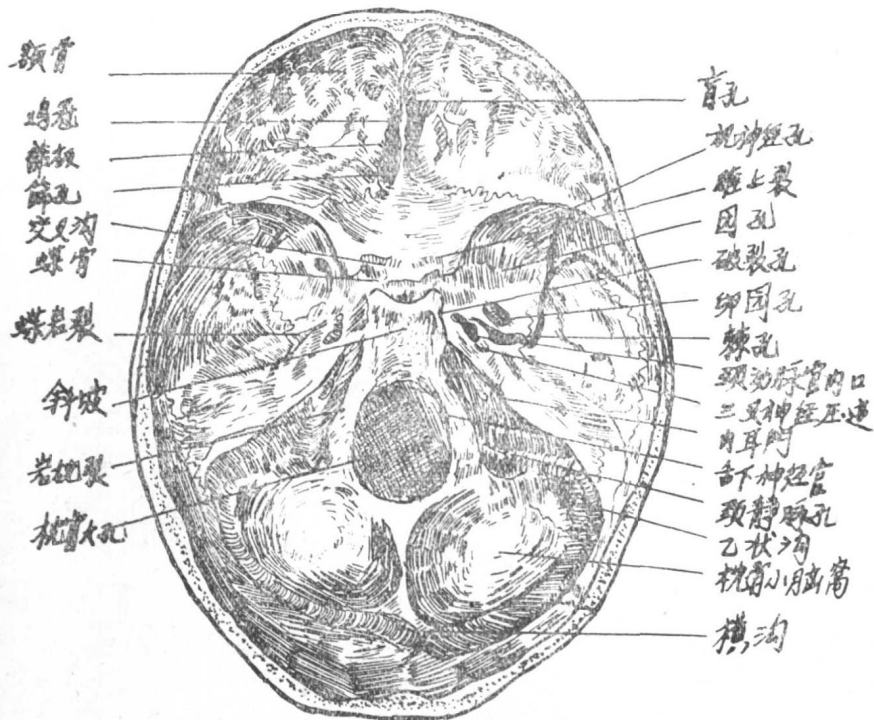 额骨
鸡冠
筛板
筛孔
交叉沟
蝶骨
蝶岩裂
斜坡
岩枕裂
枕骨大孔
盲孔
视神经孔
眶上裂
园孔
破裂孔
卵园孔
棘孔
颈动脉管内口
三叉神经压迹
内耳门
舌下神经管
颈静脉孔
乙状沟
枕骨小脑窝
横沟